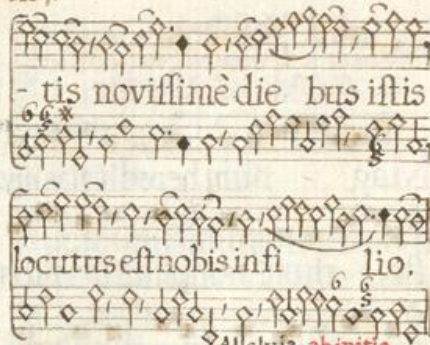 - tis novissimè die bus istis
6 6 *
5
6
5
locutus est nobis in fi lio.
6 6
5
Alleluia. ab initio